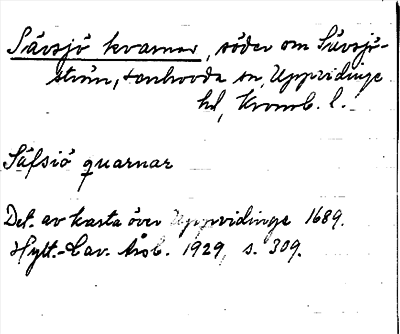 Sävsjö kvarnar, söder om Sävsjö-
ström, Lenhovda sn, Uppvidinge
hd, Kronob. l.
Säfsiö quarnar
Det. av karta över Uppvidinge 1689.
Hylt.-Cav. Årsb. 1929, s. 309.